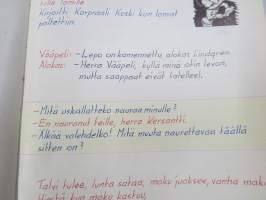 sille lomille
Kirjoitti Korpraali Koski kun lomat
peltettiin.
Vääpeli: - Lepo on komennettu alokas Lindgren.
Alokas: - Herra Vääpeli, kyllä minä otin levon,
mutta saappaat eivät totelleet.
- Mitä uskallatteko nauraa minulle?
- En nauranut teille, herra Kersantti.
- Älkää valehdelko! Mitä muuta naurettavaa täällä
sitten on?
Talvi tulee, lunta sataa, maku juoksee, vanha maku
Hiestä kun maku kastuu,